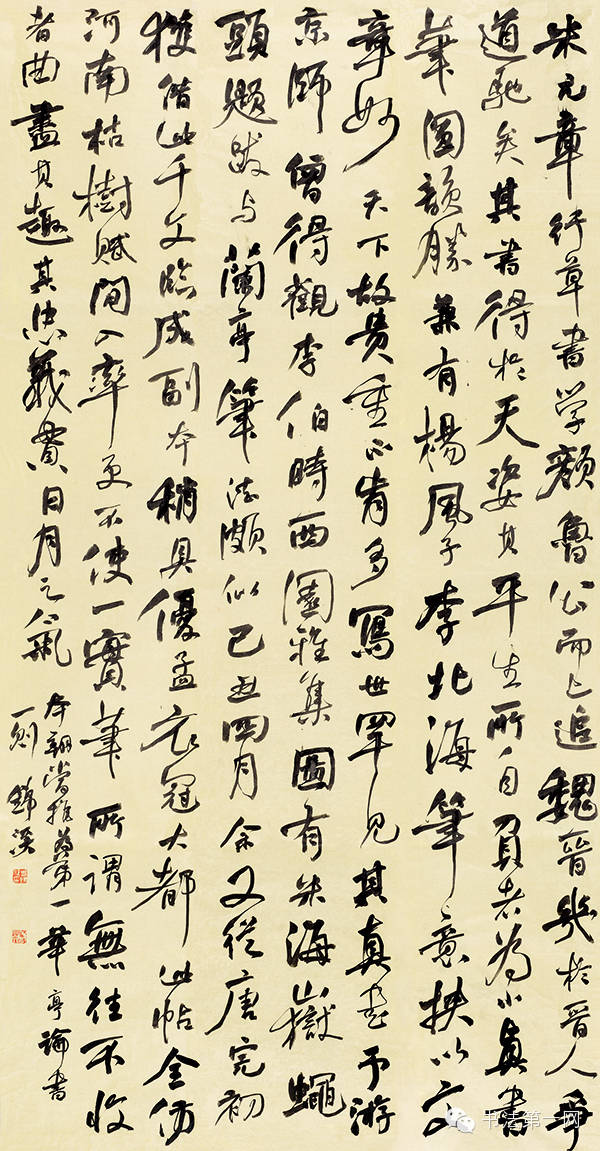 米元章行草書学顏魯公而上追魏晉幾於晉人爭
道馳矣其書得於天姿其平生所自負者為小真書
筆圓韻勝兼有楊風子李北海筆意挾以文
章妙天下故貴重不肯多寫世罕見其真書予游
京師曾得觀李伯時西園雅集圖有米海嶽蠅
頭題跋与蘭亭筆法頗似己丑四月余又從唐完初
獲借此千文臨成副本稍具優孟衣冠大都此帖全仿
河南枯樹賦間入率更不使一實筆所謂無往不收
者曲盡其趣其忠義貫日月之氣
本朝嘗推第一華亭論書
一則 錦溪
书法第一网